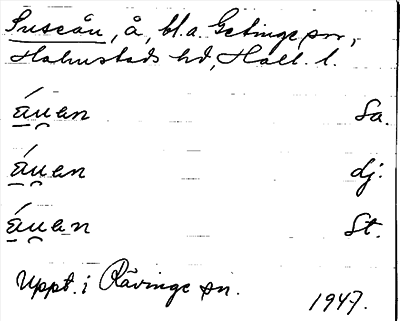 Suseån, å, bl.a. Getinge sn,
Halmstads hd, Hall. l.
áu̯en Sa.
áu̯en dj.
áu̯en St.
Uppt. i Rävinge sn.
1947.